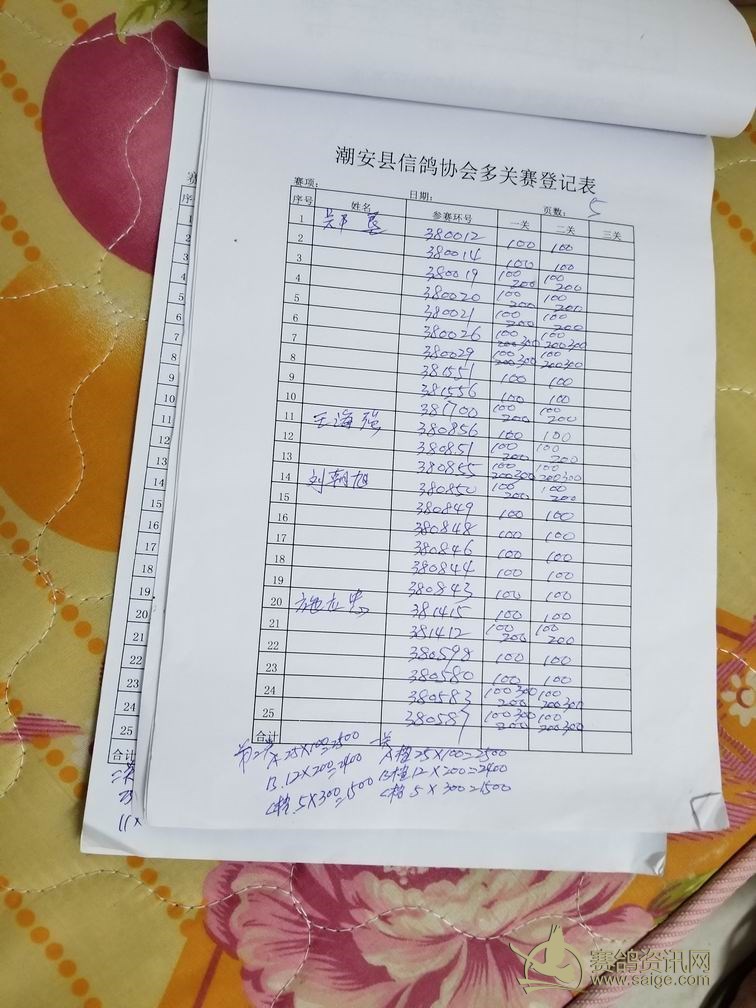 潮安县信鸽协会多关赛登记表
赛项: 日期: 页数: 5
序号 姓名 参赛环号 一关 二关 三关
1 380012 100 100
2 380014 100 100
3 380019 100 200 100 200
4 380020 100 200 100 200
5 380021 100 200 100 200
6 380026 100 200 300 100 200 300
7 380029 100 200 300 100 200 300
8 381551 100 100
9 381556 100 100
10 381700 100 200 100 200
11 王海强 380856 100 100
12 380851 100 200 100 200
13 380855 100 200 300 100 200 300
14 刘朝旭 380850 100 200 100 200
15 380849 100 100
16 380848 100 100
17 380846 100 100
18 380844 100 100
19 380843 100 100
20 381415 100 100
21 381412 100 200 100 200
22 380598 100 100
23 380580 100 100
24 380583 100 300 200 100 200 300
25 380587 100 300 200 100 200 300
合计
A 25×100=2500 A档 25×100=2500
B. 12×200=2400 B档 12×200=2400
C档. 5×300=1500 C档 5×300=1500
赛鸽资讯网
www.saige.com